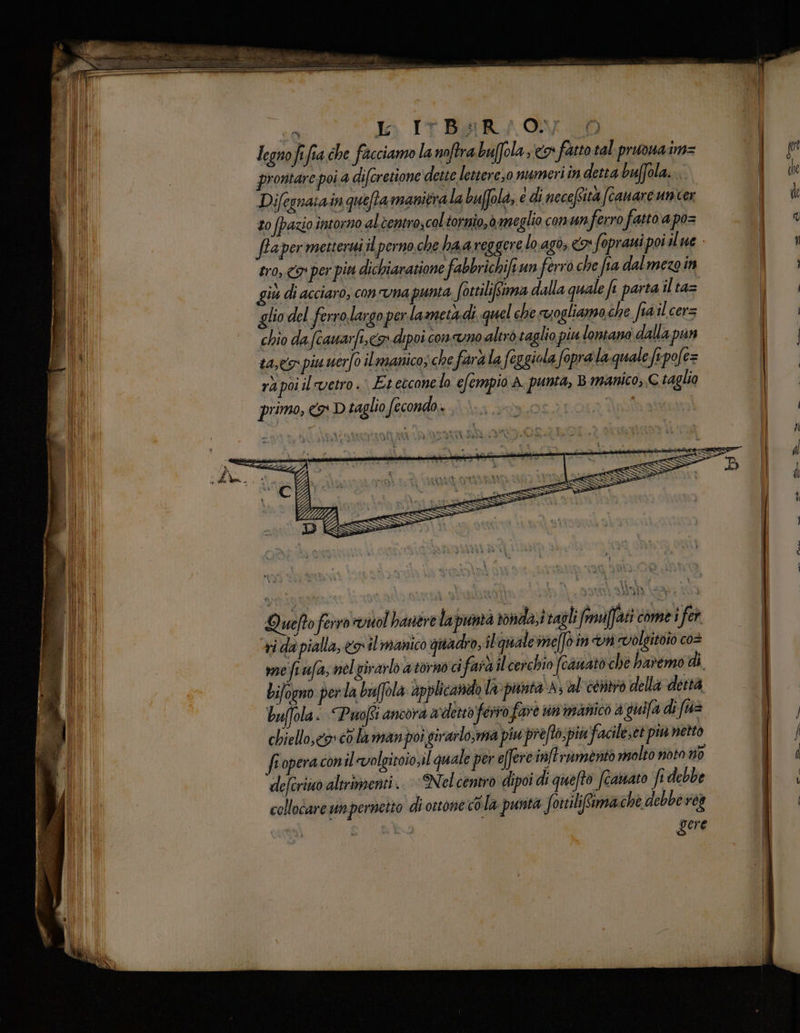 L I B R O
legno ſi ſia che facciamo la noſtra buſſola, & fatto tal pruoua im=
prontare poi a diſcretione dette lettere, o numeri in detta buſſola.
Diſegnata in queſta maniera la buſſola, è di neceſsità ſcauare un cer
to ſpazio intorno al centro, col tornio, ò meglio con un ferro fatto a po=
ſta per metterui il perno che ha a reggere lo ago, & ſopraui poi il ue
tro, & per piu dichiaratione fabbrichiſi un ferro che ſia dal mezo in
giù di acciaro, con vna punta ſottiliſsima dalla quale ſi parta il ta=
glio del ferro largo per la metà di quel che vogliamo che ſia il cer=
chio da ſcauarſi, & dipoi con vno altro taglio piu lontano dalla pun
ta, & piu uerſo il manico, che farà la ſeggiola ſopra la quale ſi poſe=
rà poi il vetro. Et eccone lo eſempio A punta, B manico, C taglio
primo, & D taglio ſecondo.
A B
C
D
Queſto ferro vuol hauere la punta tonda, i tagli ſmuſſati come i fer
ri da pialla, & il manico quadro, il quale meſſo in vn volgitoio co=
me ſi uſa, nel girarlo a torno ci farà il cerchio ſcauato che haremo di
biſogno per la buſſola applicando la punta A, al centro della detta
buſſola. Puoſsi ancora a detto ferro fare un manico a guiſa di ſu=
chiello, & cō la man poi girarlo, ma piu preſto, piu facile, et piu netto
ſi opera con il volgitoio, il quale per eſſere inſtrumento molto noto nō
deſcriuo altrimenti. Nel centro dipoi di queſto ſcauato ſi debbe
collocare un pernetto di ottone cō la punta ſottiliſsima che debbe reg
gere